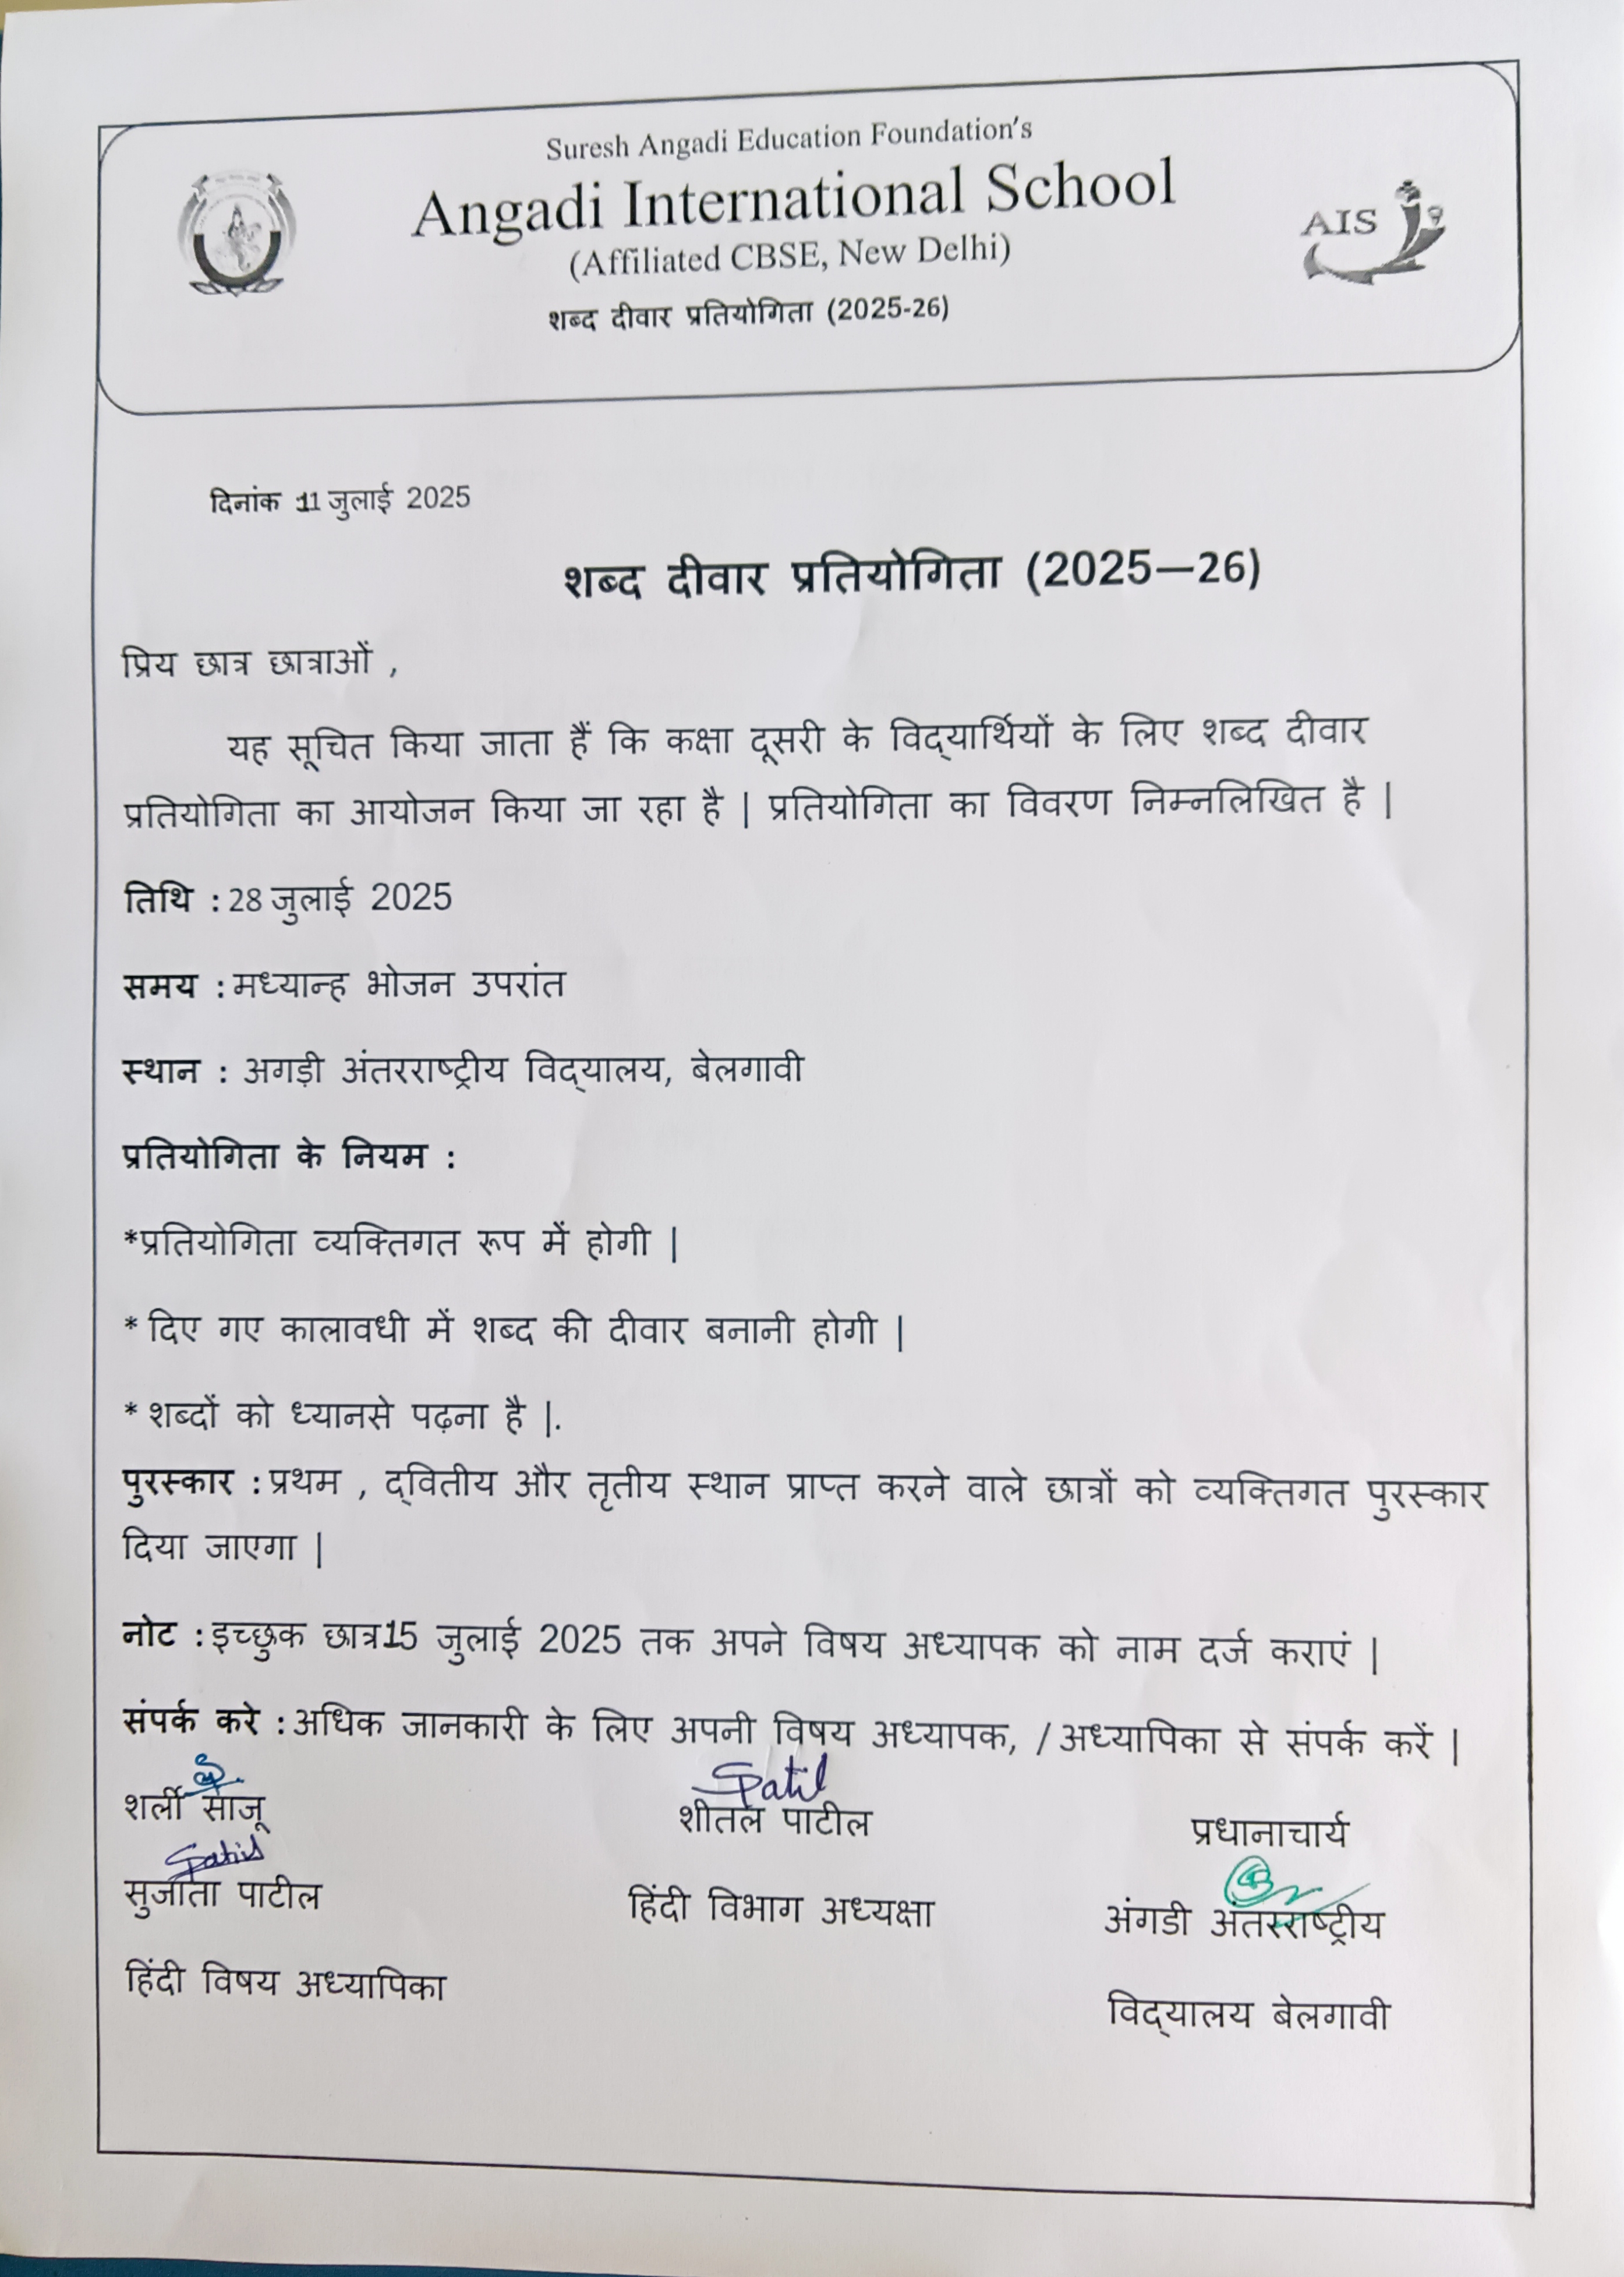 Suresh Angadi Education Foundation's
Angadi International School
(Affiliated CBSE, New Delhi)
AIS
शब्द दीवार प्रतियोगिता (2025-26)
दिनांक 11 जुलाई 2025
शब्द दीवार प्रतियोगिता (2025—26)
प्रिय छात्र छात्राओं ,
यह सूचित किया जाता हैं कि कक्षा दूसरी के विद्‌यार्थियों के लिए शब्द दीवार
प्रतियोगिता का आयोजन किया जा रहा है | प्रतियोगिता का विवरण निम्नलिखित है |
तिथि : 28 जुलाई 2025
समय : मध्यान्ह भोजन उपरांत
स्थान : अगड़ी अंतरराष्ट्रीय विद्‌यालय, बेलगावी
प्रतियोगिता के नियम :
*प्रतियोगिता व्यक्तिगत रूप में होगी |
* दिए गए कालावधी में शब्द की दीवार बनानी होगी |
* शब्दों को ध्यानसे पढ़ना है |.
पुरस्कार : प्रथम , द्‌वितीय और तृतीय स्थान प्राप्त करने वाले छात्रों को व्यक्तिगत पुरस्कार
दिया जाएगा |
नोट : इच्छुक छात्र15 जुलाई 2025 तक अपने विषय अध्यापक को नाम दर्ज कराएं |
संपर्क करे : अधिक जानकारी के लिए अपनी विषय अध्यापक, / अध्यापिका से संपर्क करें |
Patil
शर्ली साजू शीतल पाटील प्रधानाचार्य
सुजाता पाटील हिंदी विभाग अध्यक्षा अंगडी अंतरराष्ट्रीय
हिंदी विषय अध्यापिका विद्‌यालय बेलगावी